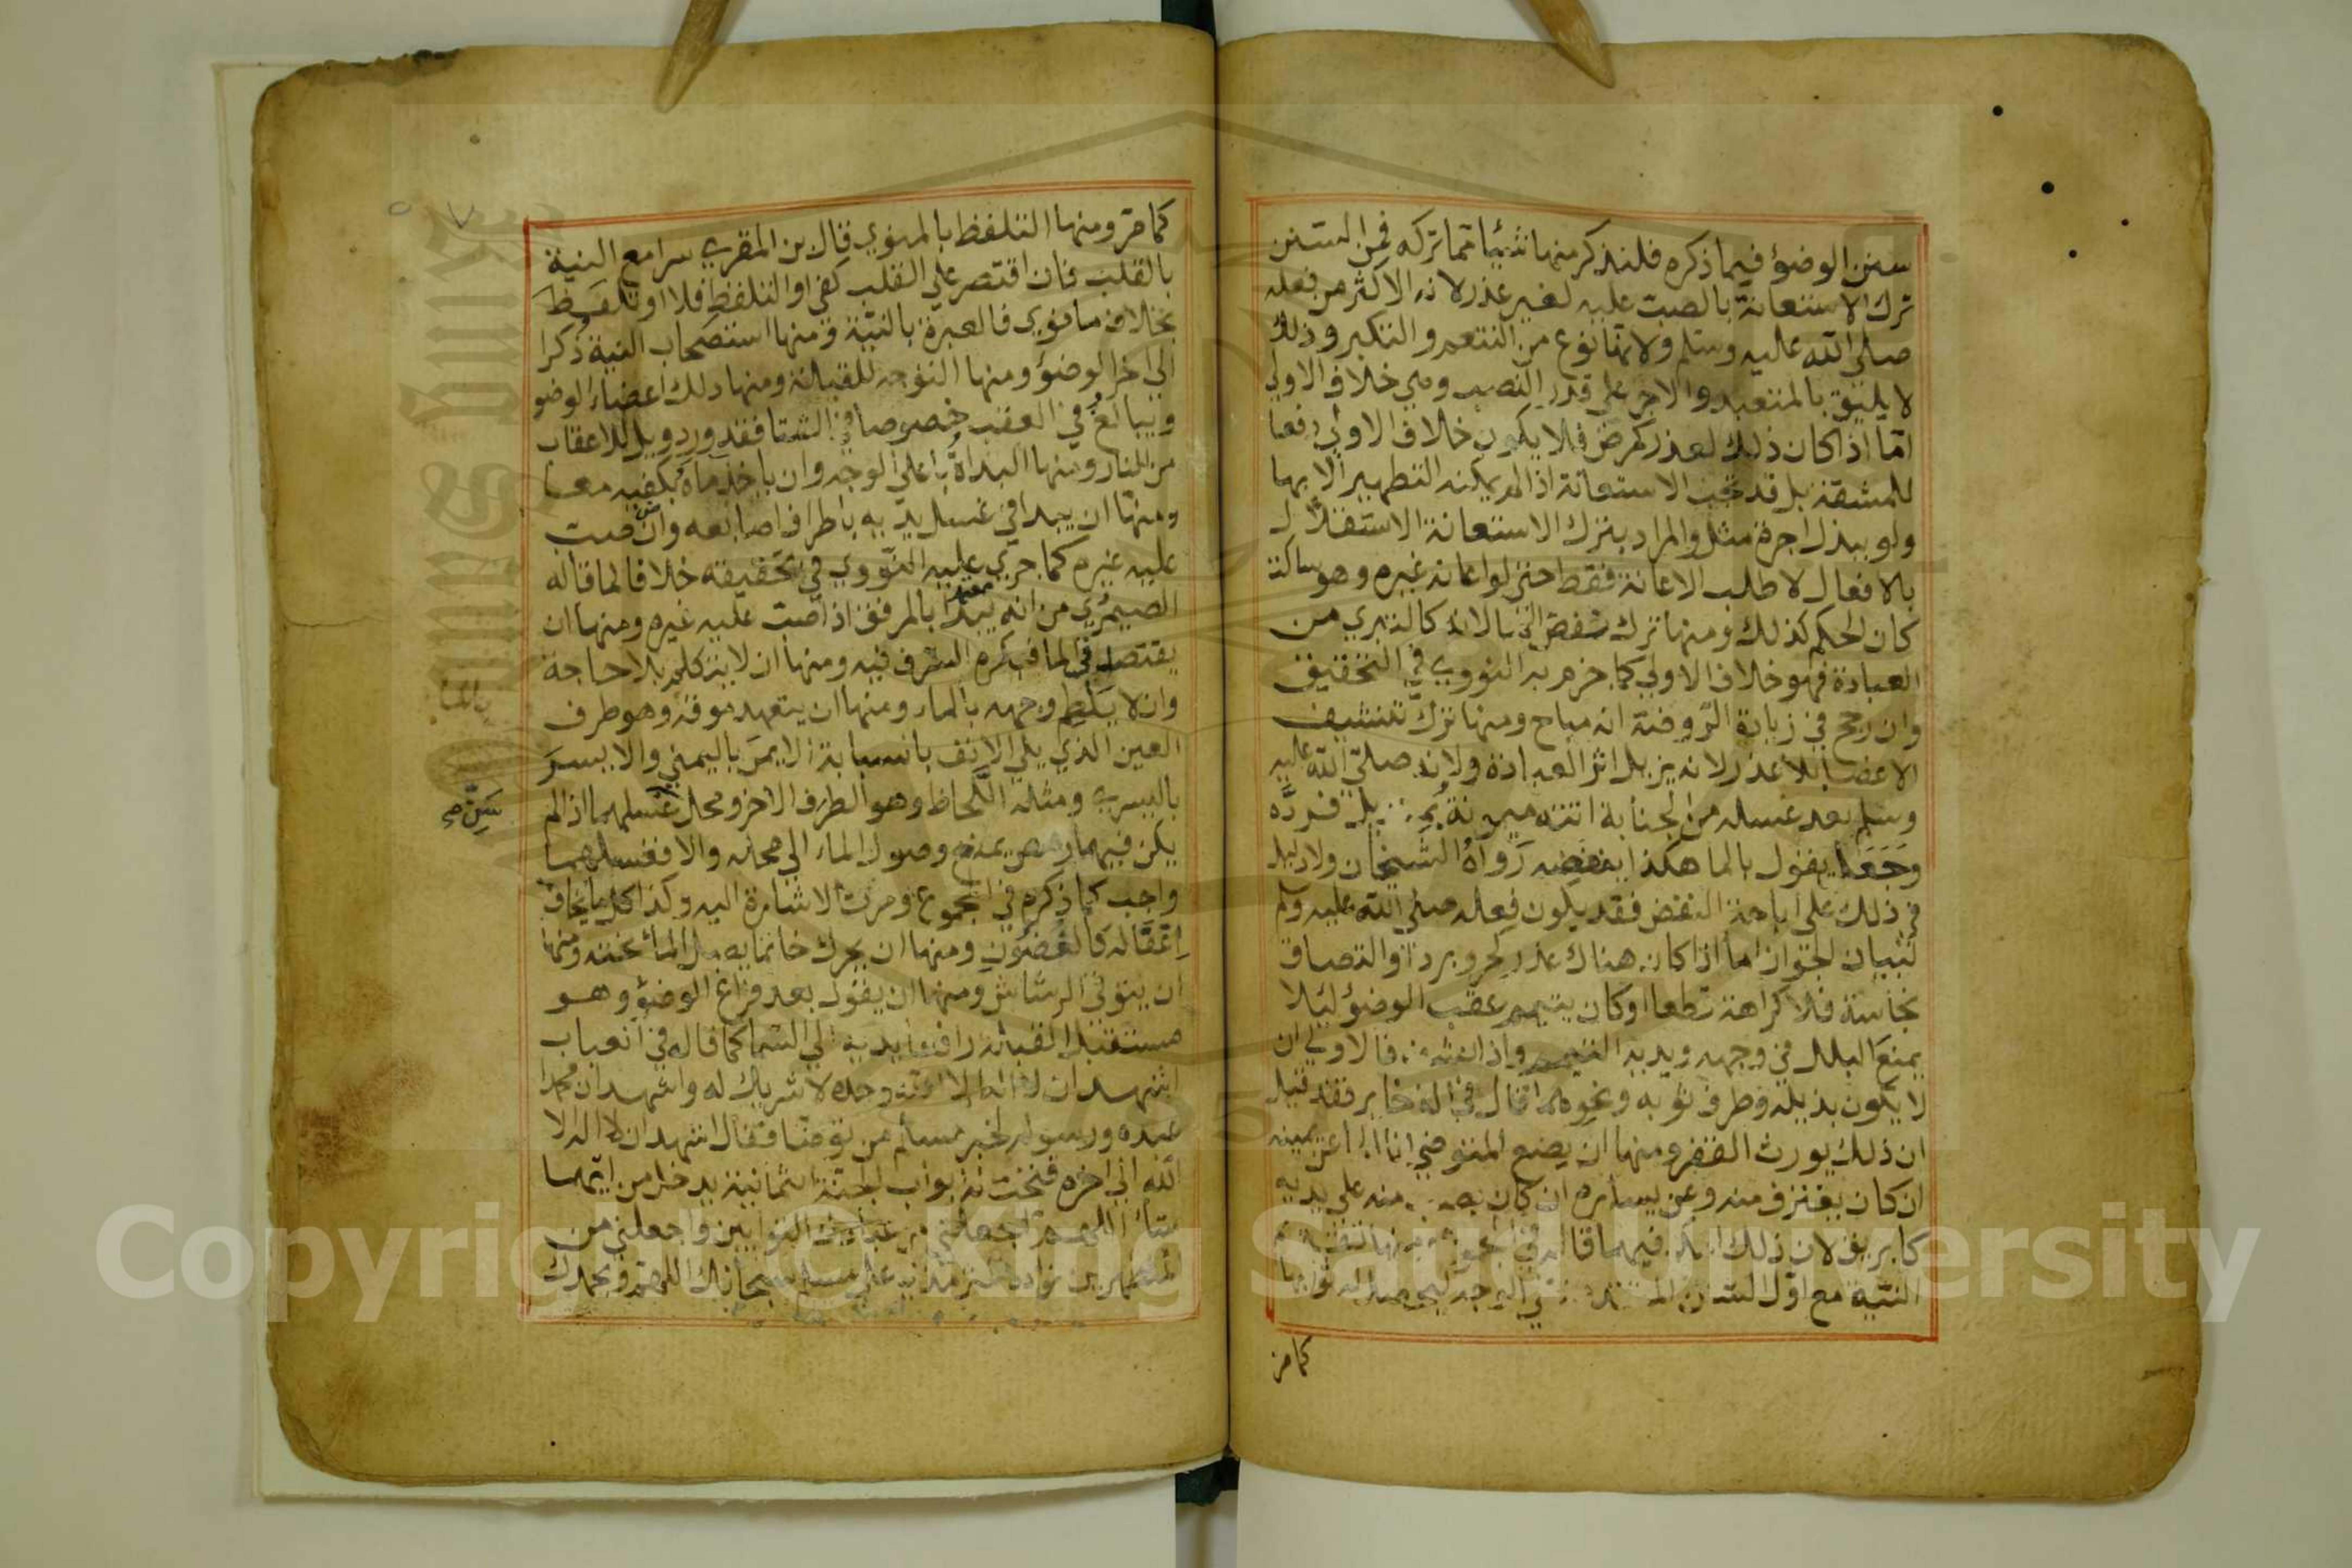 سنن الوضوء فيما ذكره فلنذكر منها شيئا مما تركه فمن السنن
ترك الاستعانة بالصب عليه لغير عذر لانه الاكثر من فعله
صلى الله عليه وسلم ولانها نوع من التنعم والتكبر وذلك
لا يليق بالمتعبد والاجر على قدر النصب وهي خلاف الاولى
اما اذا كان ذلك لعذر كمرض فلا يكون خلاف الاولى دفعا
للمشقة بل قد تجب الاستعانة اذا لم يمكنه التطهير الا بها
ولو ببذل اجرة مثل والمراد بترك الاستعانة الاستقلال
بالافعال لا طلب الاعانة فقط حتى لو اعانه غيره وهو ساكت
كان الحكم كذلك ومنها ترك نفض الماء لانه كالتبري من
العبادة فهو خلاف الاولى كما جزم به النووي في التحقيق
وان رجح في زيادة الروضة انه مباح ومنها ترك تنشيف
الاعضا بلا عذر لانه يزيل اثر العبادة ولانه صلى الله عليه
وسلم بعد غسله من الجنابة اتته ميمونة بمنديل فرده
وجعل يقول بالما هكذا ينفضه رواه الشيخان ولا دليل
في ذلك على اباحة النفض فقد يكون فعله صلى الله عليه وسلم
لبيان الجواز اما اذا كان هناك عذر كحر وبرد او التصاق
نجاسة فلا كراهة قطعا او كان يتيمم عقب الوضوء ليلا
يمنع البلل في وجهه ويديه التيمم واذا نشف فالاولى ان
لا يكون بذيله وطرف ثوبه ونحوهما قال في الذخاير فقد قيل
ان ذلك يورث الفقر ومنها ان يضع المتوضي اناء الماء عن يمينه
ان كان يغترف منه وعن يساره ان كان يصب منه على يديه
كابريق لان ذلك امكن فيهما قاله في المجموع ومنها تقديم
النية مع اول السنن المتقدمة على الوجه ليحصل له ثوابها
كما مر
كما مر ومنها التلفظ بالمنوي قال بن المقري سرا مع النية
بالقلب فان اقتصر على القلب كفى او التلفظ فلا او تلفظ
بخلاف ما نوى فالعبرة بالنية ومنها استصحاب النية ذكرا
الى اخر الوضوء ومنها التوجه للقبلة ومنها دلك اعضاء الوضو
ويبالغ في العقب خصوصا في الشتا فقد ورد ويل للاعقاب
من النار ومنها البداة باعلى الوجه وان ياخذ ماءه بكفيه معا
ومنها ان يبدا في غسل يديه باطراف اصابعه وان صب
عليه غيره كما جرى عليه النووي في تحقيقه خلافا لما قاله
الصيمري من انه يبدا بالمرفق اذا صب عليه غيره ومنها ان
يقتصد في الما فيكره السرف فيه ومنها ان لا يتكلم بلا حاجة
وان لا يلطم وجهه بالماء ومنها ان يتعهد موقه وهو طرف
العين الذي يلي الانف بالسبابة الايمن باليمنى والايسر
باليسرى ومثله اللحاظ وهو الطرف الاخر ومحل غسلهما اذا لم
يكن فيهما رمص يمنع وصول الماء الى محله والا فغسلهما
واجب كما ذكره في المجموع ومرت الاشارة اليه وكذا كل ما يخاف
اغفاله كالغضون ومنها ان يحرك خاتما يصل الماء تحته ومنها
ان يتوقى الرشاش ومنها ان يقول بعد فراغ الوضوء وهو
مستقبل القبلة رافعا يديه الى السما كما قاله في العباب
اشهد ان لا اله الا الله وحده لا شريك له واشهد ان محمدا
عبده ورسوله لخبر مسلم من توضا فقال اشهد ان لا اله الا
الله الى اخره فتحت له ابواب الجنة الثمانية يدخل من ايهما
شاء اللهم اجعلني من التوابين واجعلني من
المتطهرين زاده الترمذي على مسلم سبحانك اللهم وبحمدك